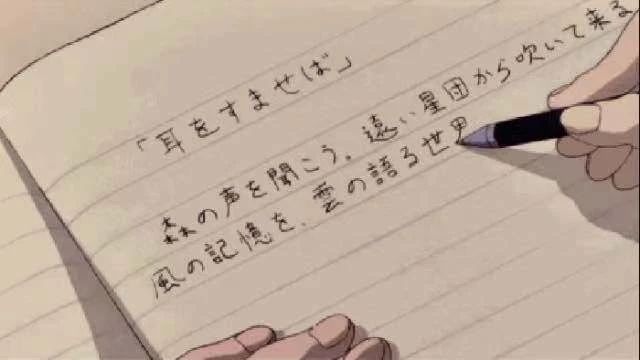 「耳をすませば」
森の声を聞こう。遠い星団から吹いて来る
風の記憶を、雲の語る世界